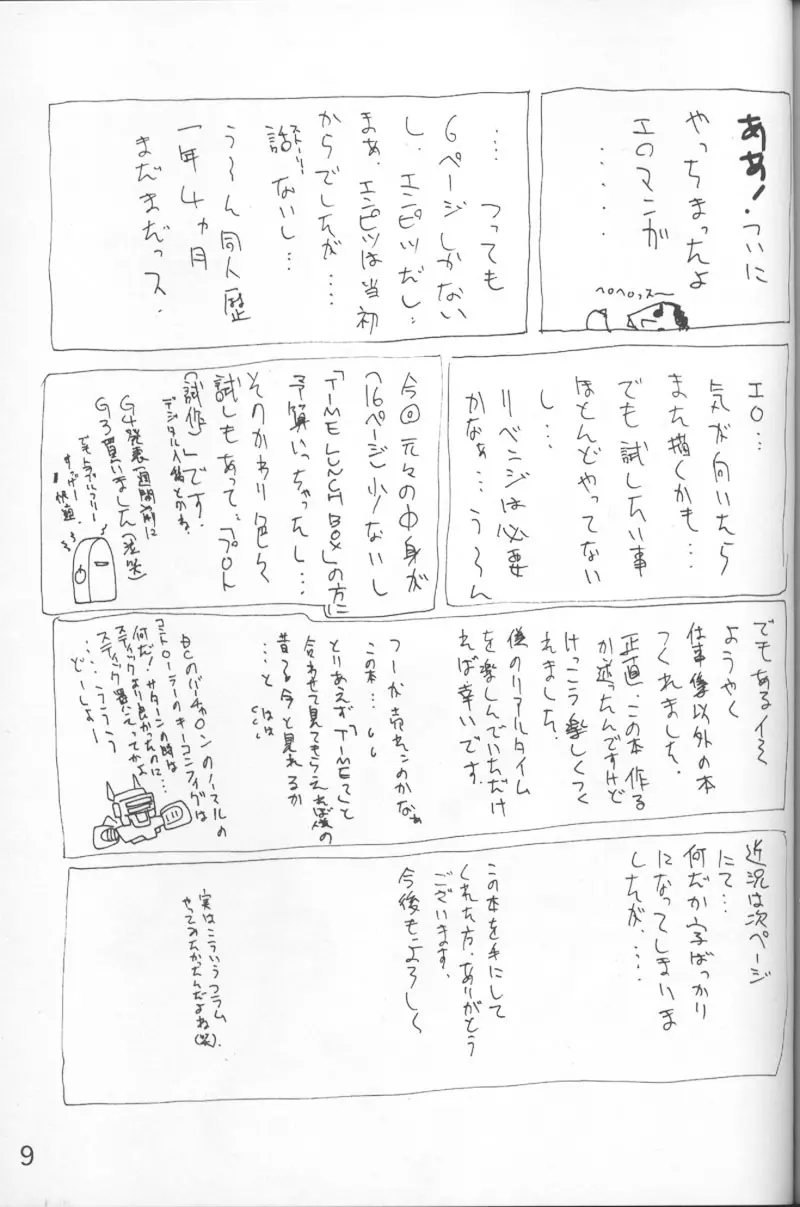 ああ!ついに
やっちまったよ
エロマンガ
・・・・・
ヘロヘロッス〜
…. つっても
6ページしかない
し、エンピツだし…
まぁ、エンピツは当初
からでしたが….
話ストーリー ないし…
う〜ん同人歴
一年4ヵ月
まだまだっス.
エロ…
気が向いたら
また描くかも…
でも試したい事
ほとんどやってない
し…
リベンジは必要
かなぁ…う〜ん
今回元々の中身が
(16ページ)少ないし
「TIME LUNCH BOX」の方に
予算いっちゃったし…
そのかわり色々
試しもあって…「プロト
(試作)」です.
デジタル入稿とかね.
G4発表1週間前に
G3買いました(泣笑)
でもトラブルフリー
すっげー
快適.
でもあるイミ
ようやく
仕事像以外の本
つくれました.
正直、この本作る
か迷ったんですけど
けっこう楽しくつく
れました.
僕のリアルタイム
を楽しんでいただけ
れば幸いです.
つーか売れんのかなぁ
この本…
とりあえず「TIME」と
合わせて見てもらえれば僕の
昔と今と見れるか
…と
DCのバーチャロンのノーマルの
コントローラーのキーコンフィグは
何だ!サターンの時は
スティックより良かったのに…
スティック買えってかよ
……うううう
どーしょー
近況は次ページ
にて…
何だか字ばっかり
になってしまいま
したが、….
この本を手にして
くれた方、ありがとう
ございます.
今後もよろしく
実はこういうコラム
やってみたかったんだよね(笑).
9